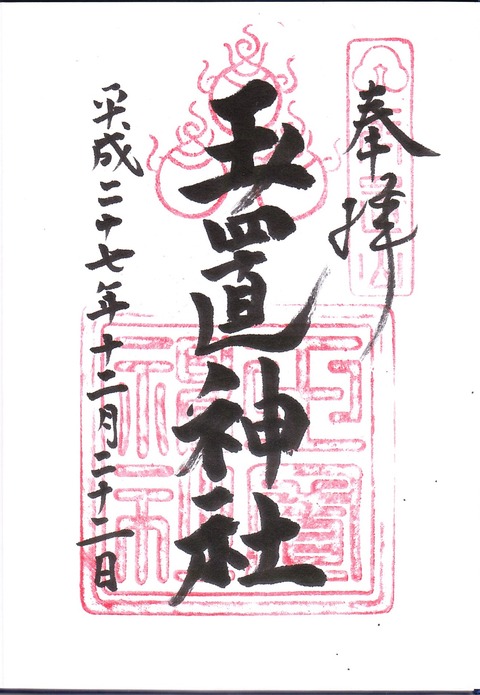 奉拝
玉置神社
平成二十七年十二月二十二日